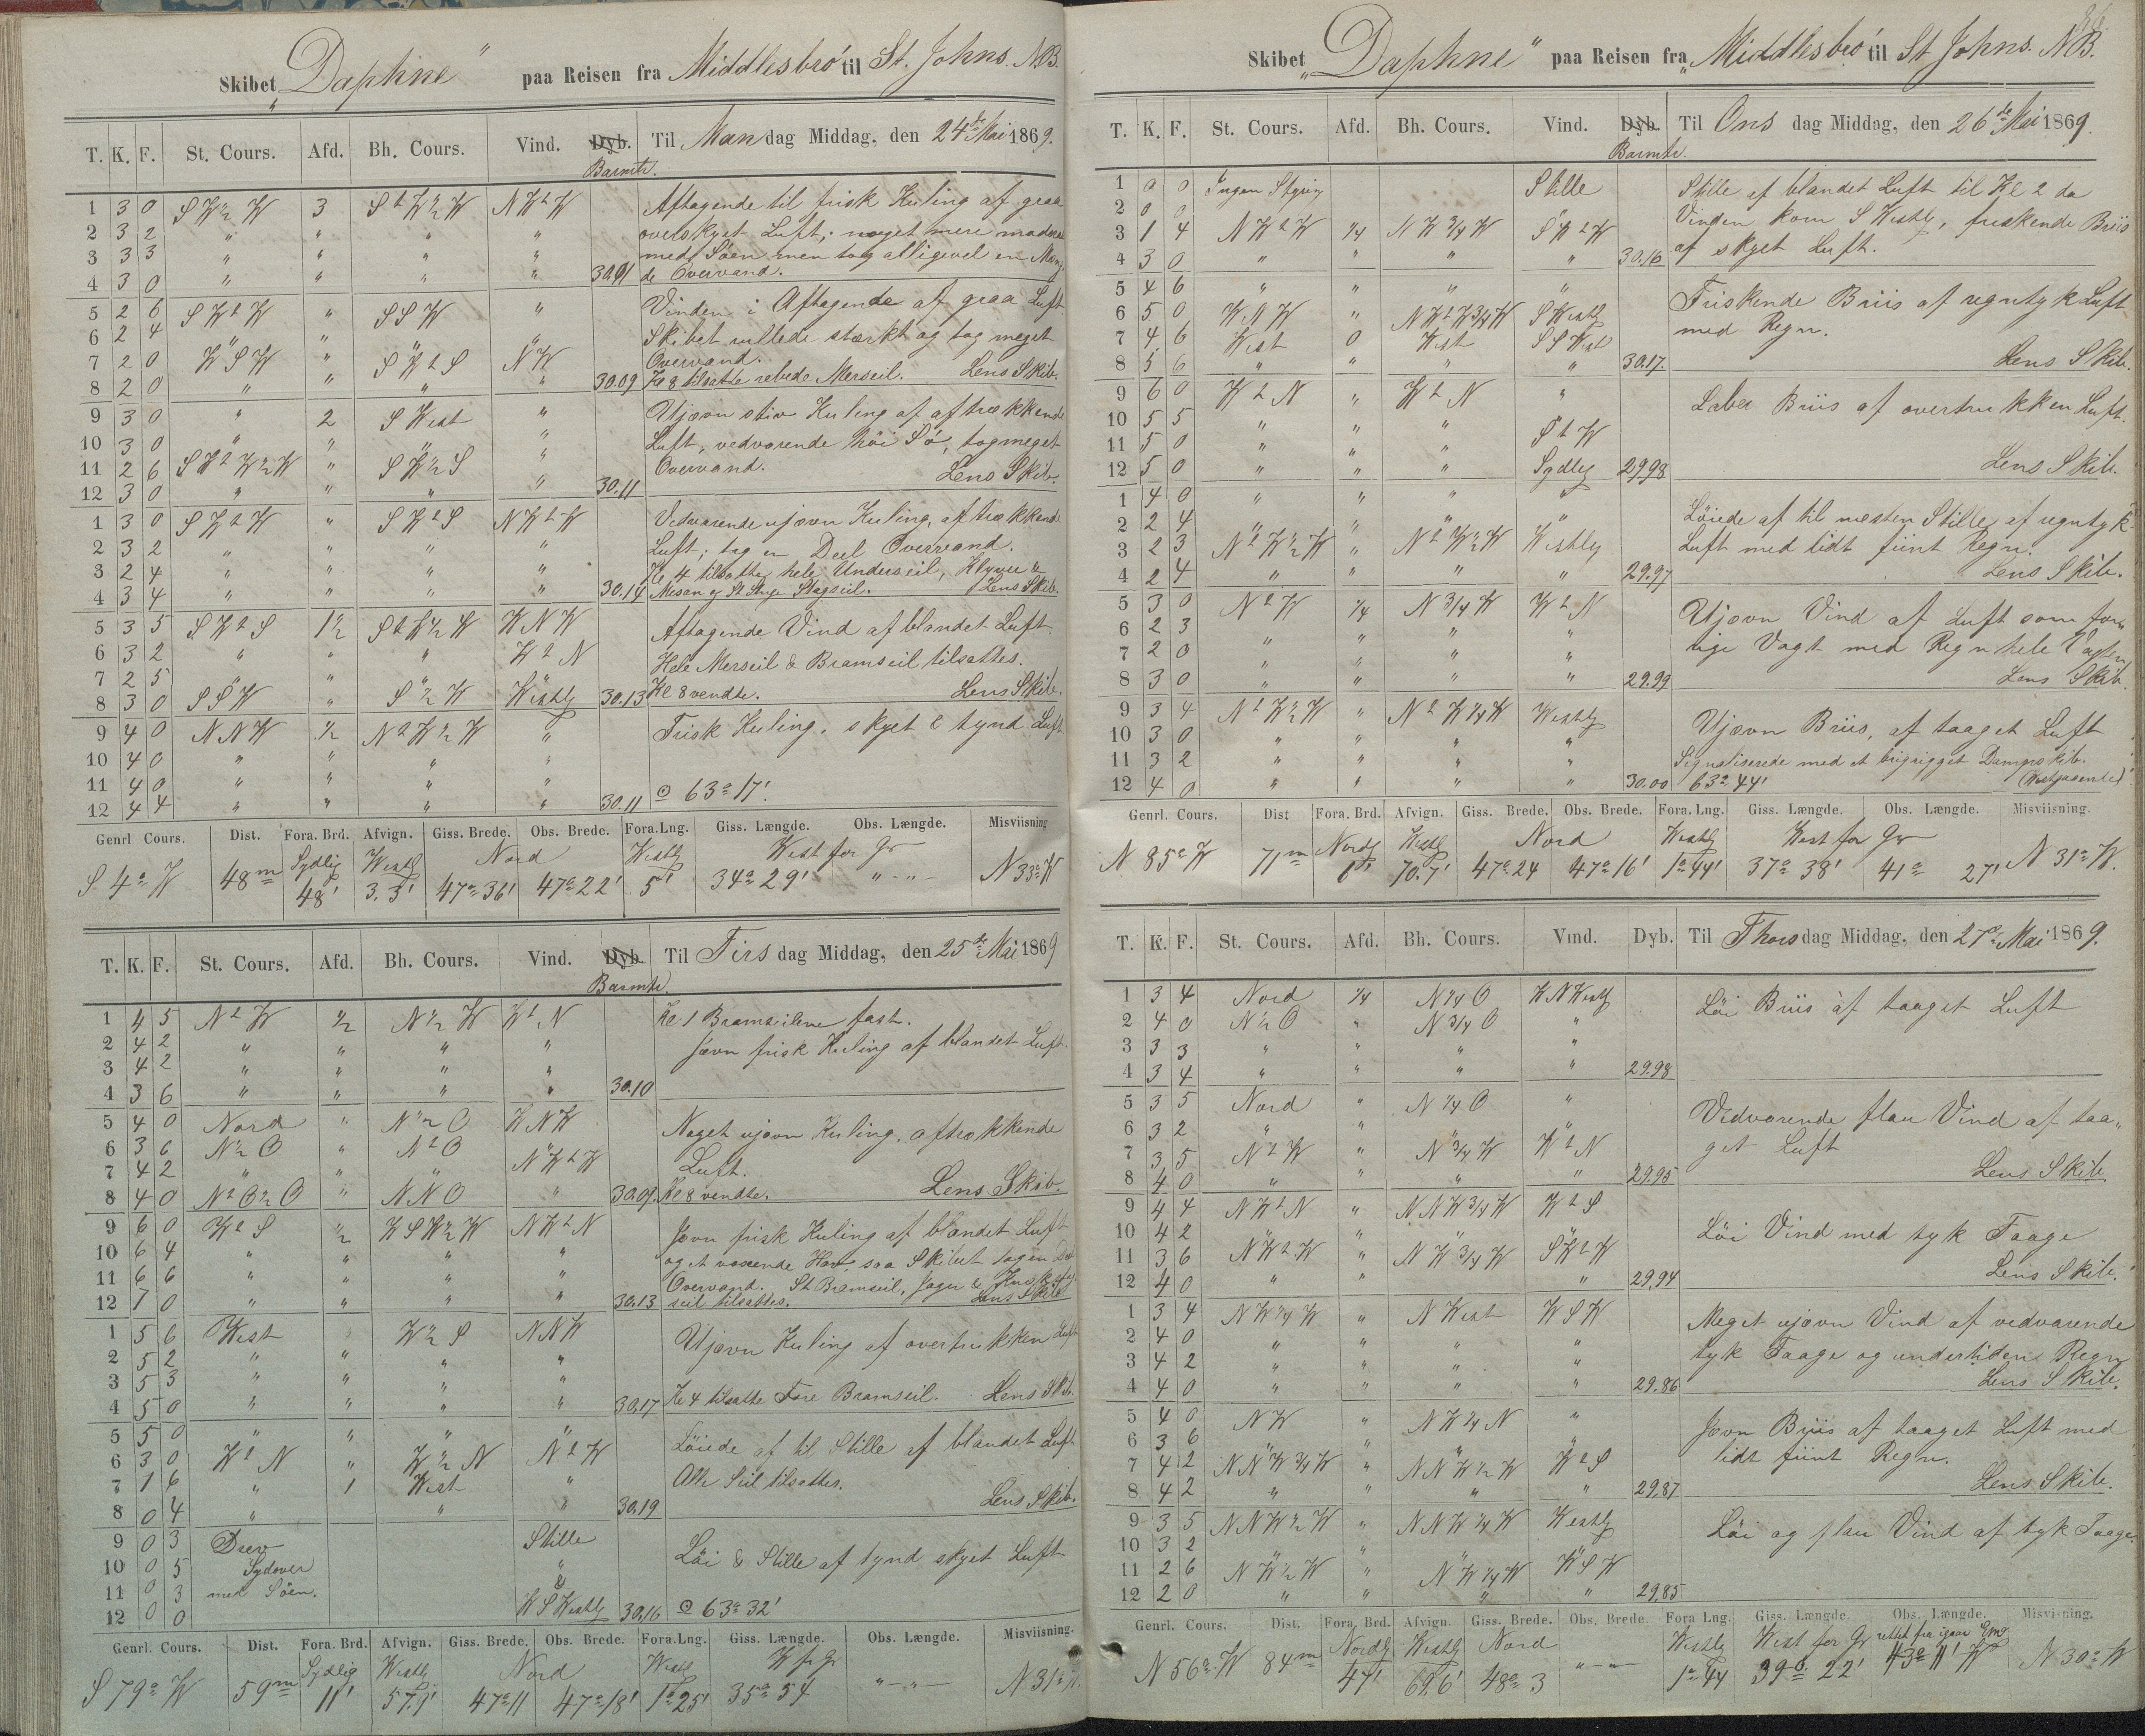 Skibet „Daphne“ paa Reisen fra Middlesbro' til St. Johns. N.B.
T. K. F. St. Cours. Afd. Bh. Cours. Vind. Dyb. Til Man dag Middag, den 24de Mai 1869.
Barmtr.
1 3 0 S W ½ W 3 S t W ½ W N W t W Aftagende til frisk Kuling af graa
2 3 2 " " " " overskyet Luft; noget mere moderat
3 3 3 " " " " med Söen men tog alligevel en Mæng-
4 3 0 " " " " 30.01 de Overvand.
5 2 6 S W t W " S S W " Vinden i Aftagende af graa Luft.
6 2 4 " " " " Skibet rullede stærkt og tog meget
7 2 0 W S W " S W t S N W Overvand.
8 2 0 " " " " 30.09 Kl 8 tilsatte rebede Merseil. Lens Skib.
9 3 0 " 2 S West " Ujævn stiv Kuling af aftrækkende
10 3 0 " " " " Luft, vedvarende höi Sö, tog meget
11 2 6 S W t W ½ W " S W ½ S " Overvand.
12 3 0 " " " " 30.11 Lens Skib.
1 3 0 S W t W " S W t S N W t W Vedvarende ujævn Kuling, aftrækkende
2 3 2 " " " " Luft; tog en Deel Overvand.
3 2 4 " " " " Kl 4 tilsattes hele Underseil, Klyver
4 3 4 " " " " 30.14 Mesan og St. Stage Stagseil. Lens Skib.
5 3 5 S W t S 1½ S t W ½ W W N W Aftagende Vind af blandet Luft.
6 3 2 " " " W t N Hele Merseil & Bramseil tilsattes.
7 2 5 " " " "
8 3 0 S S W " S ½ W Westly 30.13 Kl 8 vendte. Lens Skib.
9 4 0 N N W ½ N t W ½ W " Frisk Kuling. skyet & tynd Luft
10 4 0 " " " "
11 4 0 " " " "
12 4 4 " " " " 30.11 ⊙ 63° 17'.
Genrl Cours. Dist. Fora. Brd. Afvign. Giss. Brede. Obs. Brede. Fora.Lng. Giss. Længde. Obs. Længde. Misviisning
Sydlig Westly Nord Westly West for Gr
S 4° W 48m 48' 3.3' 47° 36' 47° 22' 5' 34° 29' " - " - N 33° W
T. K. F. St. Cours. Afd. Bh. Cours. Vind. Dyb. Til Tirs dag Middag, den 25de Mai 1869
Barmtr.
1 4 5 N t W ½ N ½ W W t N Kl 1 Bramseilene fast.
2 4 2 " " " " Jævn frisk Kuling af blandet Luft
3 4 2 " " " "
4 3 6 " " " " 30.10
5 4 0 Nord " N ½ O W N W Noget ujævn Kuling, aftrækkende
6 3 6 N ½ O " N t O Luft.
7 4 2 " " " N W t W
8 4 0 N t O ½ O " N N O " 30.07. Kl 8 vendte. Lens Skib.
9 6 0 W t S ½ W S W ½ W N W t N Jævn frisk Kuling af blandet Luft
10 6 4 " " " " og et voxende Hav, saa Skibet tog en Deel
11 6 6 " " " " Overvand. St Bramseil, Jager &
12 7 0 " " " " 30.13 seil tilsattes. Lens Skib
1 5 6 West " W ½ S N N W Ujævn Kuling af overtrukken Luft
2 5 2 " " " "
3 5 3 " " " "
4 5 0 " " " " 30.17 Kl 4 tilsatte Fore Bramseil. Lens Skib.
5 5 0 " " " " Löiede af til Stille af blandet Luft
6 3 0 W t N " W ½ N N t W
7 1 6 " 1 West " Alle Seil tilsattes.
8 0 4 " " " 30.19 Lens Skib.
9 0 3 Drev Stille Löi & Stille af tynd skyet Luft
10 0 5 Sydover "
11 0 3 med Söen. "
12 0 0 W S Westly 30.16 ⊙ 63° 32'
Genrl. Cours. Dist. Fora. Brd. Afvign. Giss. Brede. Obs. Brede. Fora.Lng. Giss. Længde. Obs. Længde. Misviisning.
Sydlig Westly Nord Westly W for Gr
S 79° W 59m 11' 57.9' 47° 11 47° 18' 1° 25' 35° 54 " - " - N 31° W.
Skibet „Daphne“ paa Reisen fra „Middlesbro' til St Johns. N.B.
T. K. F. St. Cours. Afd. Bh. Cours. Vind. Dyb. Til Ons dag Middag, den 26de Mai 1869.
Barmtr.
1 0 0 Ingen Styring Stille Stille af blandet Luft til Kl 2 da
2 0 0 Vinden kom S Westly, friskende Briis
3 1 4 N W t W ¼ N W ¾ W S W t W af skyet Luft.
4 3 0 " " " " 30.16
5 4 6 " " " " Friskende Briis af regntyk Luft
6 5 0 W N W " N W t W ¾ W S Westly med Regn.
7 4 6 West 0 West S S West
8 5 6 " " " " 30.17. Lens Skib.
9 6 0 W t N " W t N " Laber Briis af overtrukken Luft.
10 5 5 " " " "
11 5 0 " " " S t W
12 5 0 " " " Sydlig 29.98 Lens Skib.
1 4 0 " " " " Löiede af til næsten Stille, af regntyk
2 2 4 " " " " Luft med lidt fiint Regn.
3 2 3 N t W ½ W " N t W ½ W Westly
4 2 4 " " " " 29.97 Lens Skib.
5 3 0 N t W ¼ N ¾ W W t N Ujævn Vind af Luft som for-
6 2 3 " " " " rige Vagt med Regn hele Vagten
7 2 0 " " " "
8 3 0 " " " " 29.99 Lens Skib.
9 3 4 N t W ½ W " N t W ¼ W Westly Ujævn Briis, af taaget Luft
10 3 0 " " " "
11 3 2 " " " " Signaliserede med et brigrigget Dampskib.
12 4 0 " " " " 30.00 63° 44'
Genrl. Cours. Dist Fora. Brd. Afvign. Giss. Brede. Obs. Brede. Fora. Lng. Giss. Længde. Obs. Længde. Misviisning.
Nordly Westly Nord Westly West for Gr
N 85° W 71m 6' 70.7' 47° 24 47° 16' 1° 44' 37° 38' 41° 27' N 31° W.
T. K. F. St. Cours. Afd. Bh. Cours. Vind. Dyb. Til Thors dag Middag, den 27de Mai 1869.
1 3 4 Nord ¼ N ¼ O W N Westly Löi Briis af taaget Luft
2 4 0 N ½ O " N ¾ O "
3 3 3 " " " "
4 3 4 " " " " 29.98
5 3 5 Nord " N ¼ O " Vedvarende flau Vind af taa-
6 3 2 " " " " get Luft
7 3 5 N t W " N ¾ W W t N
8 4 0 " " " " 29.95 Lens Skib.
9 4 4 N W t N " N N W ¾ W W t S Löi Vind med tyk Taage
10 4 2 " " " "
11 3 6 N W t W " N W ¾ W S W t W
12 4 0 " " " 29.94 Lens Skib.
1 3 4 N W ¼ W " N West W S W Meget ujævn Vind af vedvarende
2 4 0 " " " " tyk Taage og undertiden Regn
3 4 2 " " " "
4 4 0 " " " " 29.86 Lens Skib.
5 4 0 N W " N W ¼ N " Jævn Briis af taaget Luft med
6 3 6 " " " " lidt fiint Regn.
7 4 2 N N W ¾ W " N N W ½ W W t S
8 4 2 " " " " 29.87 Lens Skib.
9 3 5 N N W ½ W " N N W ¼ W Westly Löi og flau Vind af tyk Taage.
10 3 2 " " " "
11 2 6 N W ½ W " N W ¼ W W S W
12 2 0 " " " " 29.85
Genrl. Cours. Dist. Fora. Brd. Afvign. Giss. Brede. Obs. Brede. Fora Lng. Giss. Længde. Obs. Længde. Misvisning.
Nordly Westly Nord Westly West for Gr rettet fra igaar
N 56° W 84m 47' 69.6' 48° 3 " - " 1° 44 39° 22' 43° 11' W N 30° W